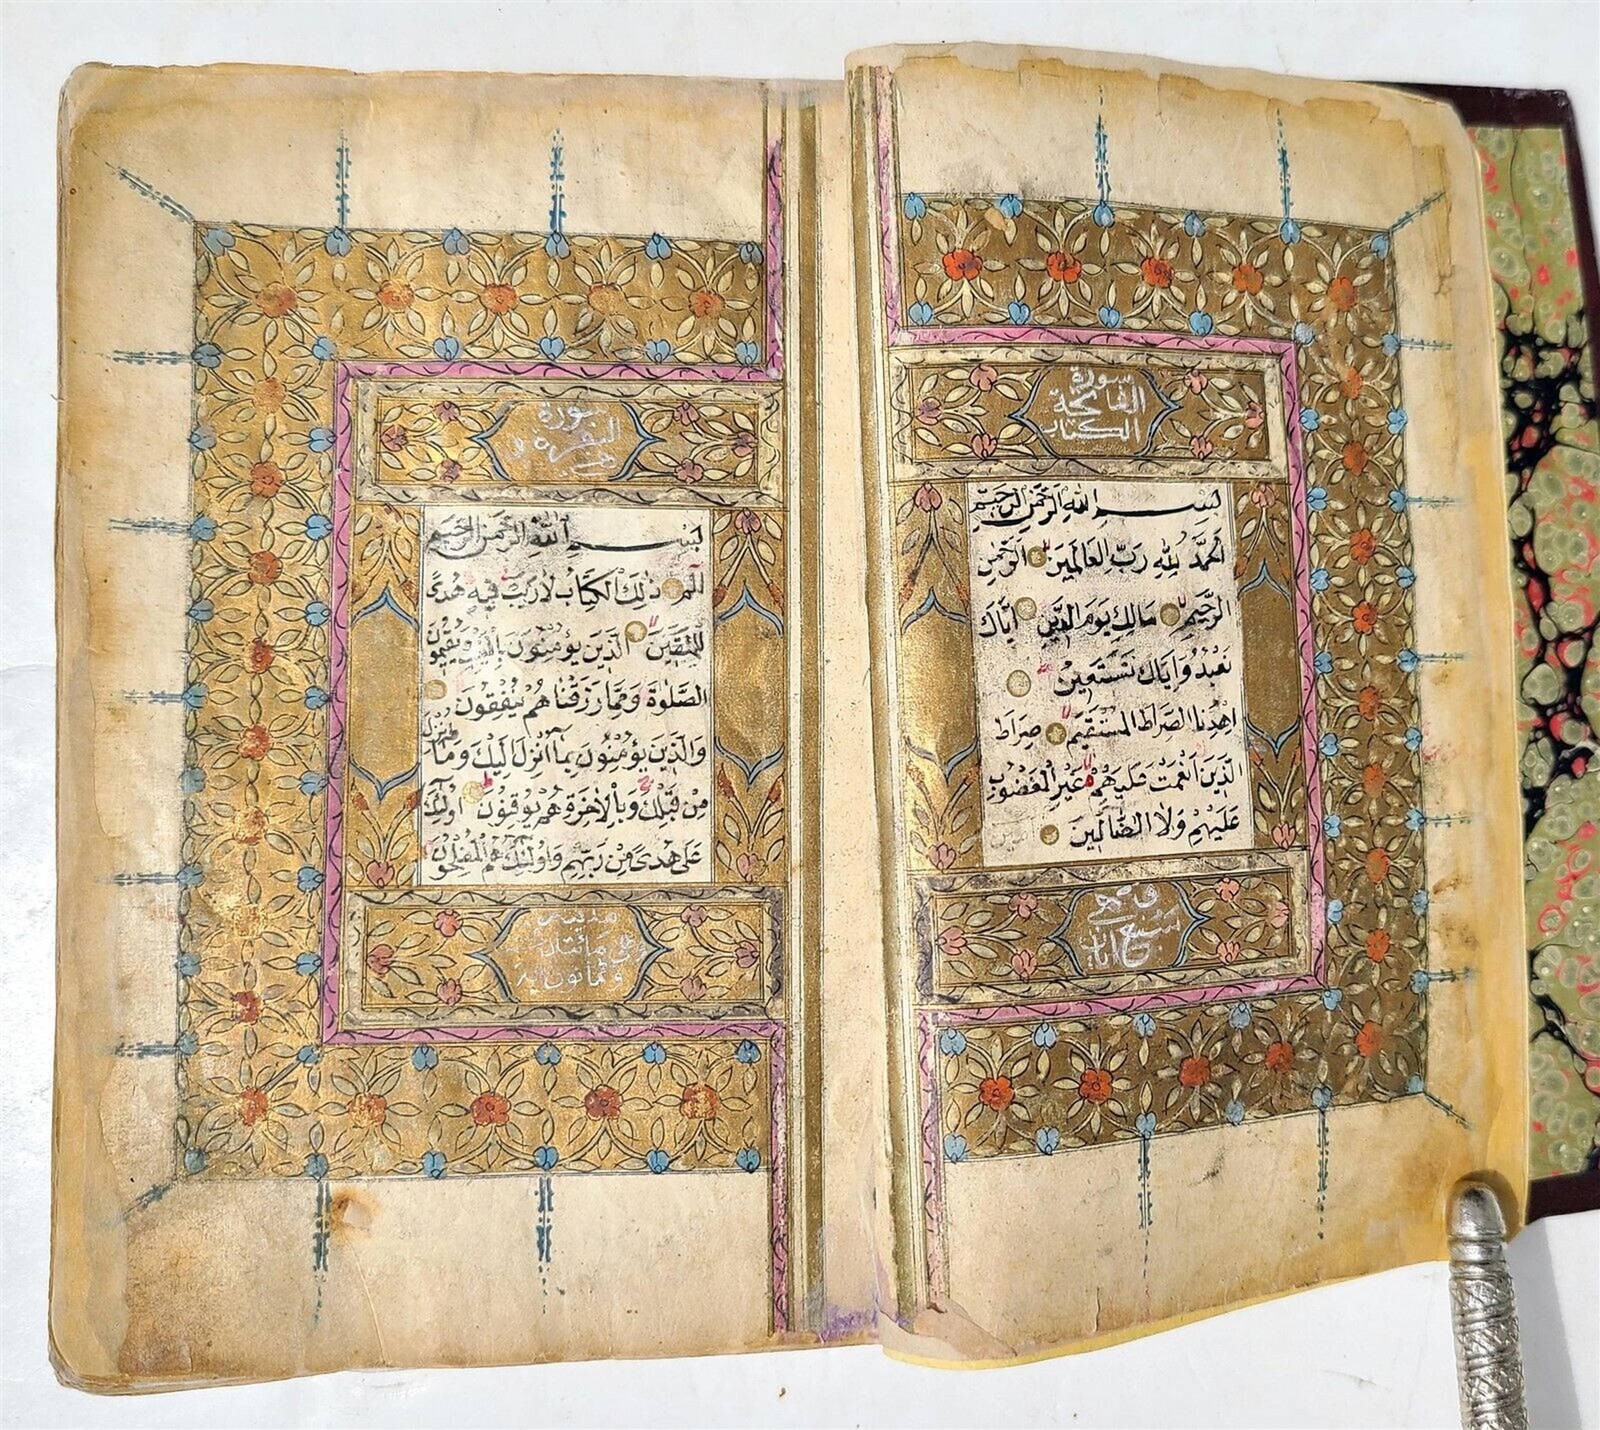 سورة
الفاتحة
الكتاب
بسم الله الرحمن الرحيم
الحمد لله رب العالمين الرحمن
الرحيم مالك يوم الدين اياك
نعبد واياك نستعين
اهدنا الصراط المستقيم صراط
الذين انعمت عليهم غير المغضوب
عليهم ولا الضالين
وهي
سبع آيات
سورة
البقرة
بسم الله الرحمن الرحيم
الم ذلك الكتاب لا ريب فيه هدى
للمتقين الذين يؤمنون بالغيب ويقيمون
الصلوة ومما رزقناهم ينفقون
والذين يؤمنون بما انزل اليك وما انزل
من قبلك وبالاخرة هم يوقنون اولئك
على هدى من ربهم واولئك هم المفلحون
مدنية
وهي مائتان
وثمانون آية